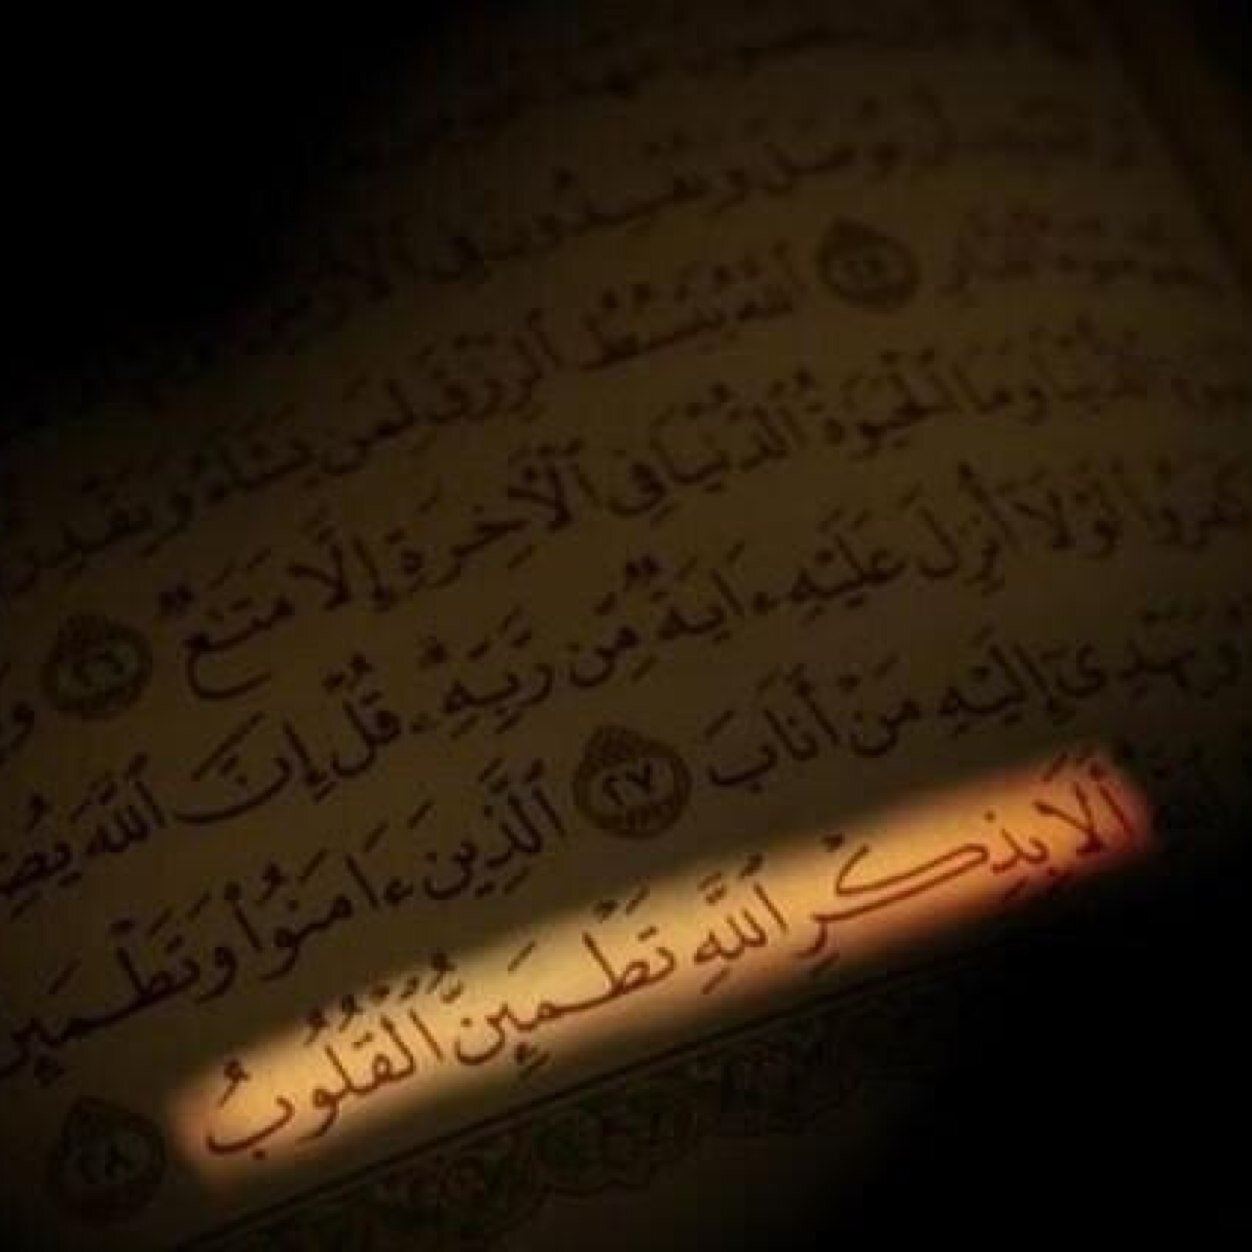 وَيُفْسِدُونَ فِى ٱلْأَرْضِ
ٱللَّهُ يَبْسُطُ ٱلرِّزْقَ لِمَن يَشَآءُ وَيَقْدِرُ
ٱلدُّنْيَا وَمَا ٱلْحَيَوٰةُ ٱلدُّنْيَا فِى ٱلْأَخِرَةِ إِلَّا مَتَٰعٌ ٢٦
كَفَرُوا۟ لَوْلَآ أُنزِلَ عَلَيْهِ ءَايَةٌ مِّن رَّبِّهِۦ قُلْ إِنَّ ٱللَّهَ
وَيَهْدِىٓ إِلَيْهِ مَنْ أَنَابَ ٢٧ ٱلَّذِينَ ءَامَنُوا۟ وَتَطْمَئِنُّ
أَلَا بِذِكْرِ ٱللَّهِ تَطْمَئِنُّ ٱلْقُلُوبُ ٢٨